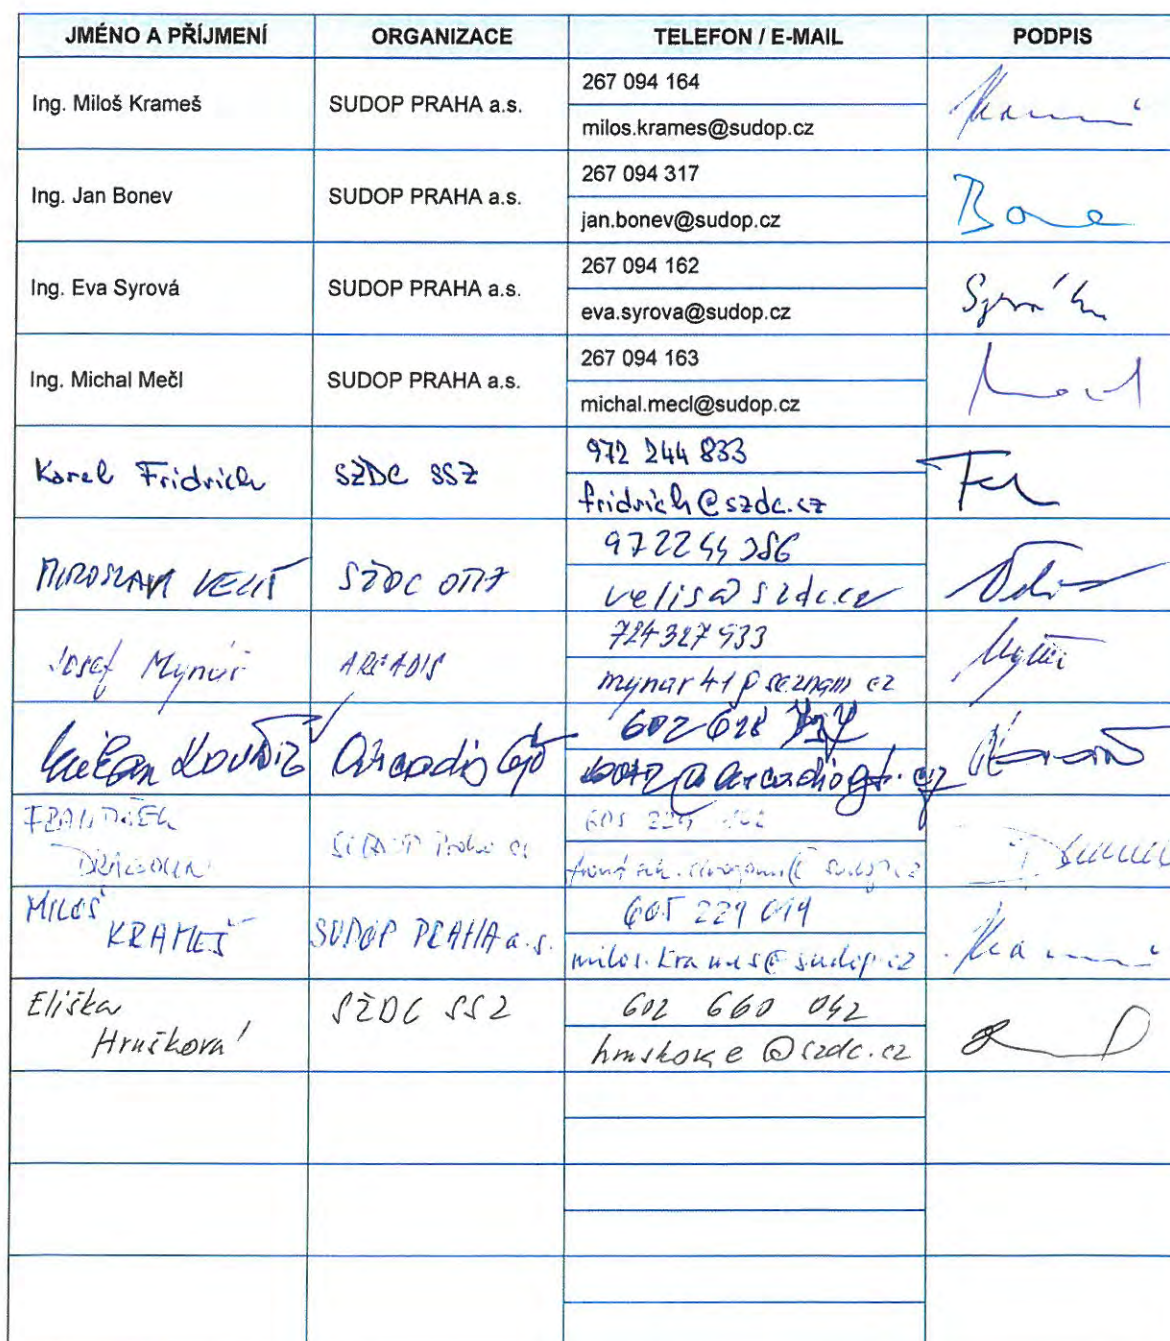 JMÉNO A PŘÍJMENÍ ORGANIZACE TELEFON / E-MAIL PODPIS
Ing. Miloš Krameš SUDOP PRAHA a.s. 267 094 164
milos.krames@sudop.cz
Ing. Jan Bonev SUDOP PRAHA a.s. 267 094 317
jan.bonev@sudop.cz
Ing. Eva Syrová SUDOP PRAHA a.s. 267 094 162
eva.syrova@sudop.cz
Ing. Michal Mečl SUDOP PRAHA a.s. 267 094 163
michal.mecl@sudop.cz
Karel Fridrich SŽDC SSZ 972 244 833
fridrich@szdc.cz
MIROSLAV VELIŠ SŽDC
velis@szdc.cz
Josef Mynář ARCADIS 724327933
mynar41@seznam.cz
Milan
602 628
FRANTIŠEK
605 229
MILOŠ
KRAMEŠ SUDOP PRAHA a.s. 605 229 019
milos.krames@sudop.cz
Eliška SŽDC SSZ 602 660 042
Hrušková
hruskova e@szdc.cz